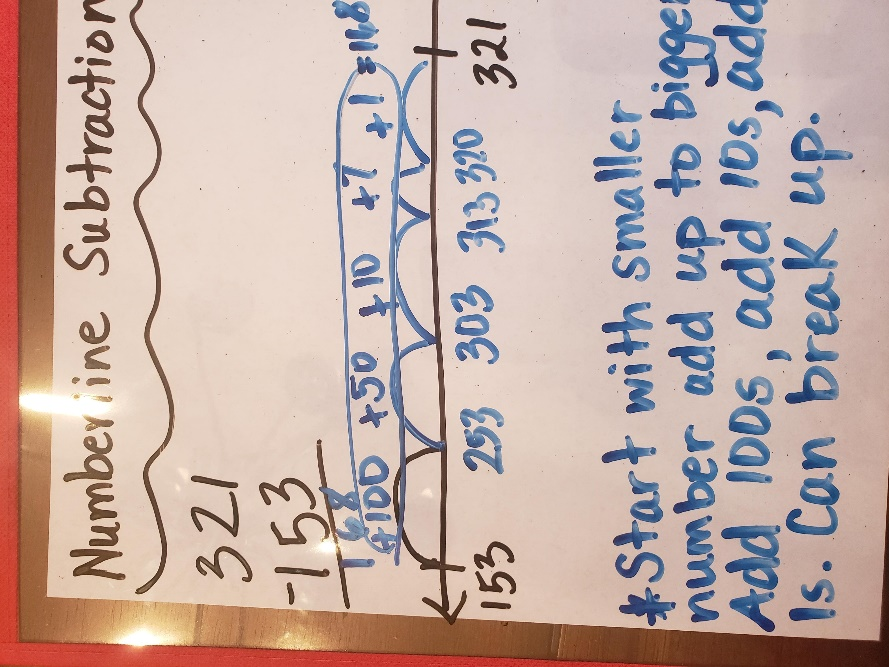 Numberline Subtraction
321
-153
168
+100 +50 +10 +7 +1 =168
153 253 303 313 320 321
*Start with smaller
number add up to bigger
Add 100s, add 10s, add
1s. Can break up.